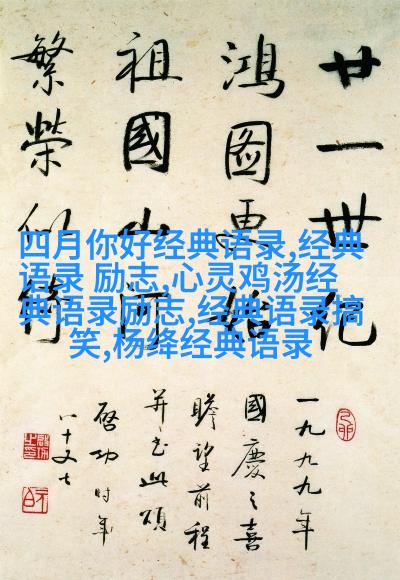 廿一世纪
鸿图更始
祖國山河
繁榮似
四月你好经典语录,经典
语录 励志,心灵鸡汤经
典语录励志,经典语录搞
笑,杨绛经典语录
一九九九年
國慶之喜
瞻望前程
并书此颂
啓功时年
八十又七